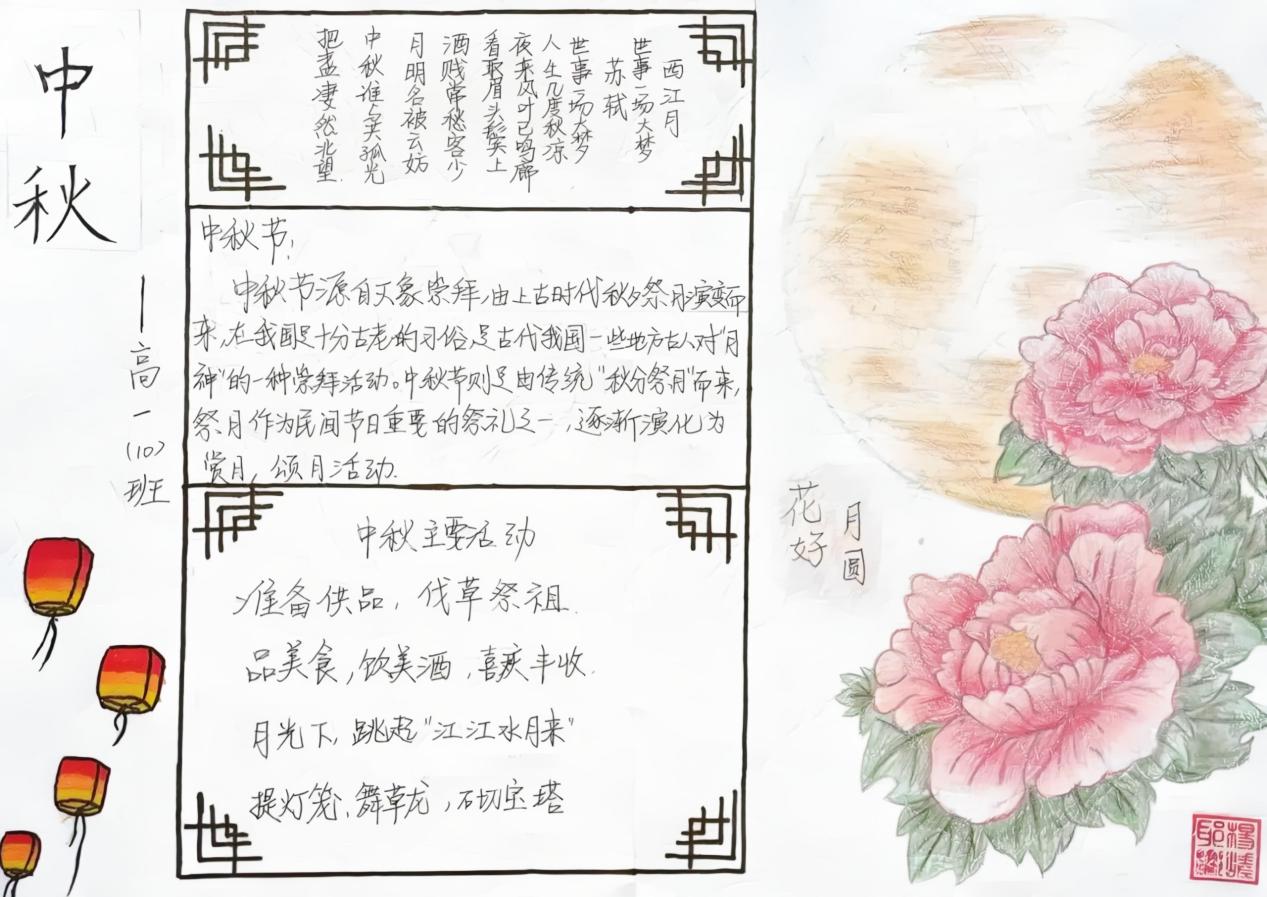 中秋
——高一(10)班
西江月
世事一场大梦
苏轼
世事一场大梦
人生几度秋凉
夜来风叶已鸣廊
看取眉头鬓上
酒贱常愁客少
月明多被云妨
中秋谁与共孤光
把盏凄然北望.
中秋节:
中秋节源自天象崇拜,由上古时代秋夕祭月演变而
来,在我国是十分古老的习俗,是古代我国一些地方古人对“月
神”的一种崇拜活动。中秋节则是由传统“秋分祭月”而来,
祭月作为民间节日重要的祭礼之一,逐渐演化为
赏月,颂月活动.
中秋主要活动
准备供品,伐草祭祖.
品美食,饮美酒,喜庆丰收.
月光下,跳起“江江水月来”
提灯笼、舞草龙,砌宝塔
花好
月圆